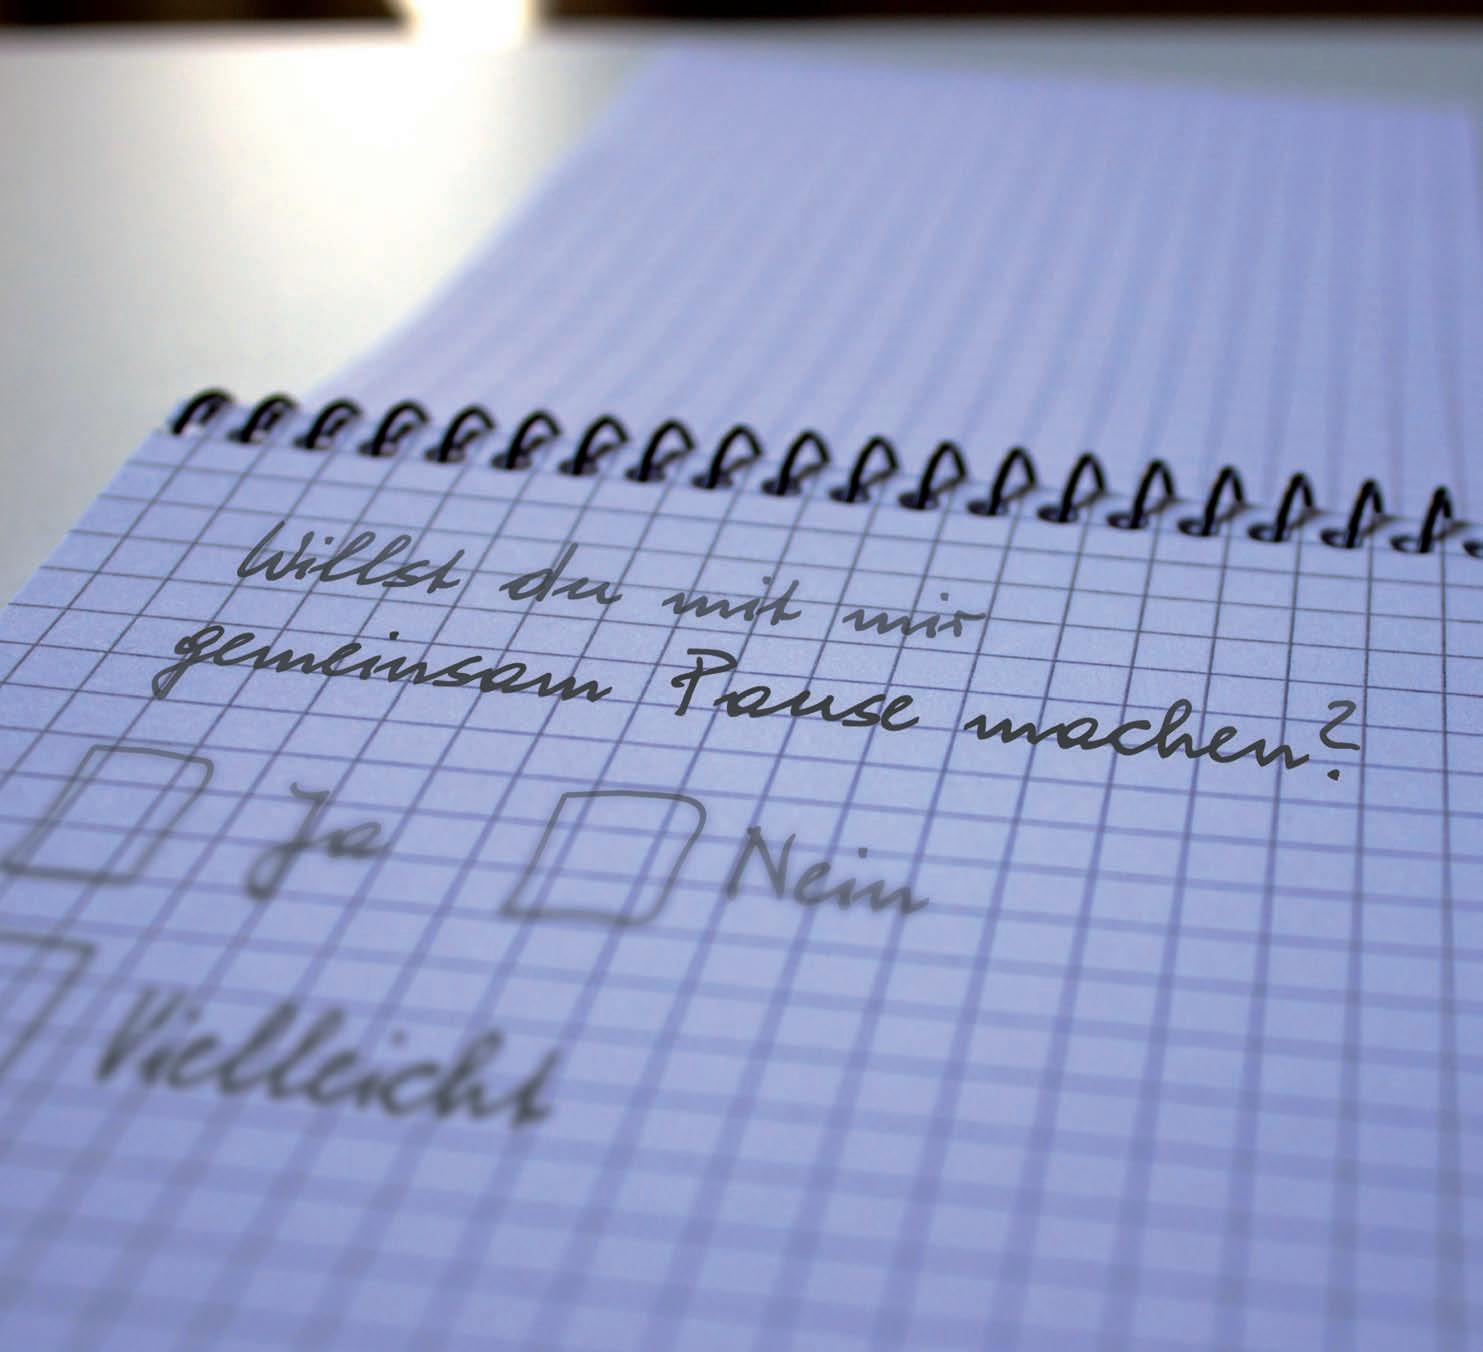 Willst du mit mir
gemeinsam Pause machen?
Ja Nein
Vielleicht